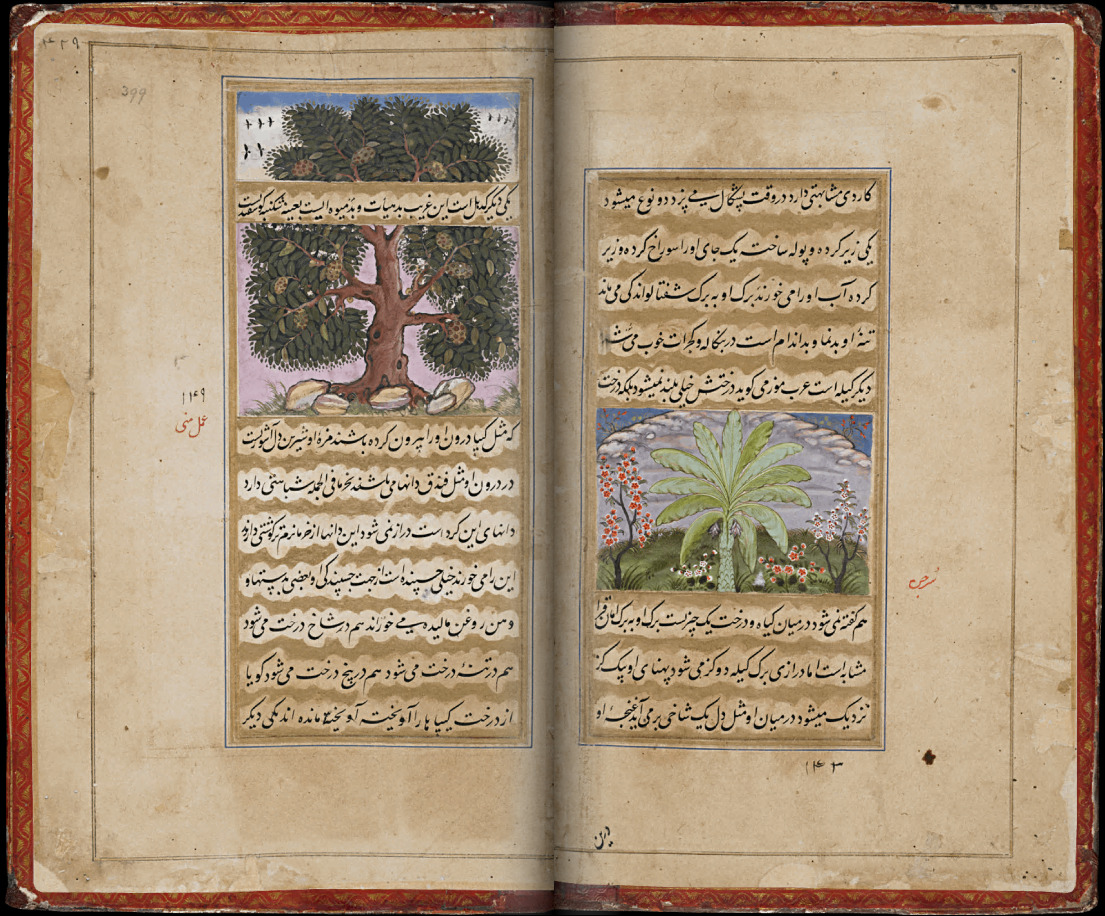 کاردی مشابهتی دارد در وقت پشکال می پزد دو نوع میشود
یکی زیر کرده و پوله ساخت یک جای او را سوراخ کرده و زیر
کرده آب او را می خورند برگ او به برگ شفتالو اندکی می ماند
تنهٔ او بدنما و بداندام است در بنگاله و گجرات خوب می شود
دیگر کیله است عرب موز می گوید درختش خیلی بلند نمیشود بلکه درخت
هم گفته نمی شود در میان گیاه و درخت یک چیز است برگ او به برگ امان قرا
مشابه است اما درازی برگ کیله دو گز می شود پهنای او بیک گز
نزدیک میشود در میان او مثل دل یک شاخی بر می آید غنچهٔ او
سرخ
۱۴۳
این
۱۴۲۹
399
یکی دیگر کدهل است این غریب بدهیأت و بدمیوه ایست بعینه شکنبه گوسفند
که مثل گیپا درون او را بیرون کرده باشند مزهٔ او شیرین دل آشوب است
در درون او مثل فندق دانها می باشند بخرما فی الجمله شباهتی دارد
دانهای این گرد است دراز نمی شود این دانها از خرما نرم تر گوشتی دارند
این را می خورند خیلی چسپنده است از جهت چسپندگی او بعضی بدستها و
دهن روغن مالیده می خورند هم در شاخ درخت می شود
هم در تنهٔ درخت می شود هم در بیخ درخت می شود گویا
از درخت گیپا ها را آویخته آویخته مانده اند یکی دیگر
۱۱۴۹
عمل منی